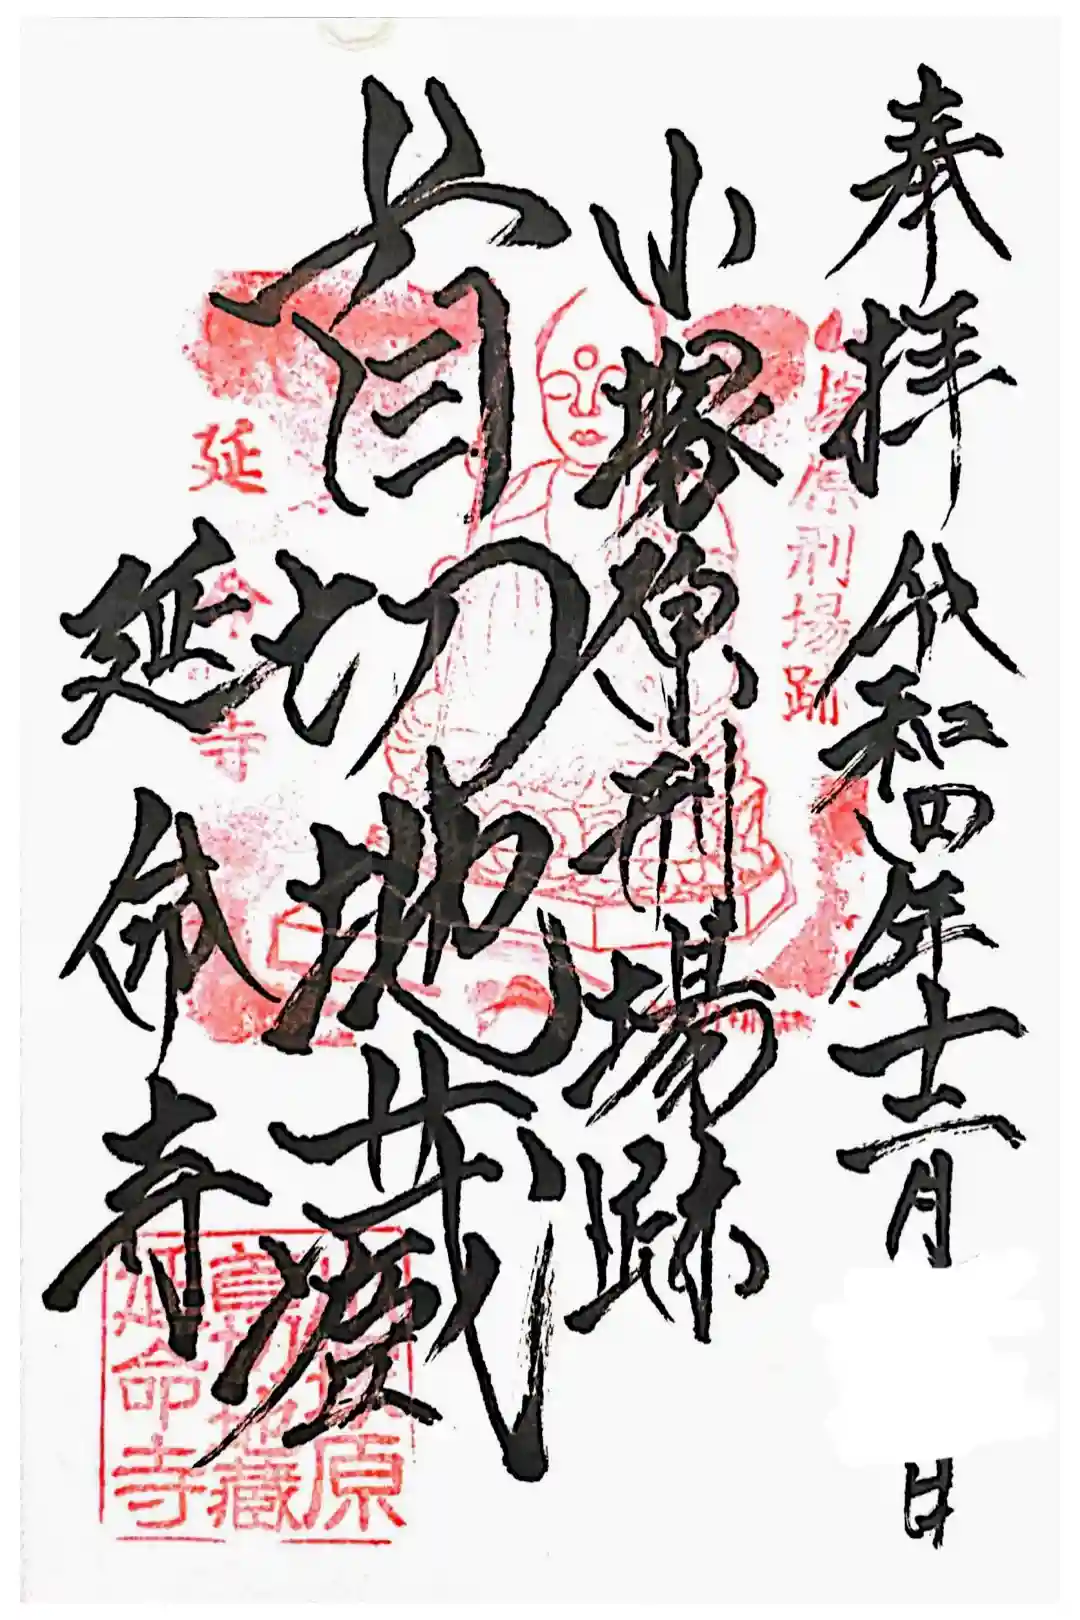 奉拝 令和四年十二月 日
小塚原刑場跡
首切地蔵
延命寺
原刑場跡
延命寺
原
首切地蔵
延命寺